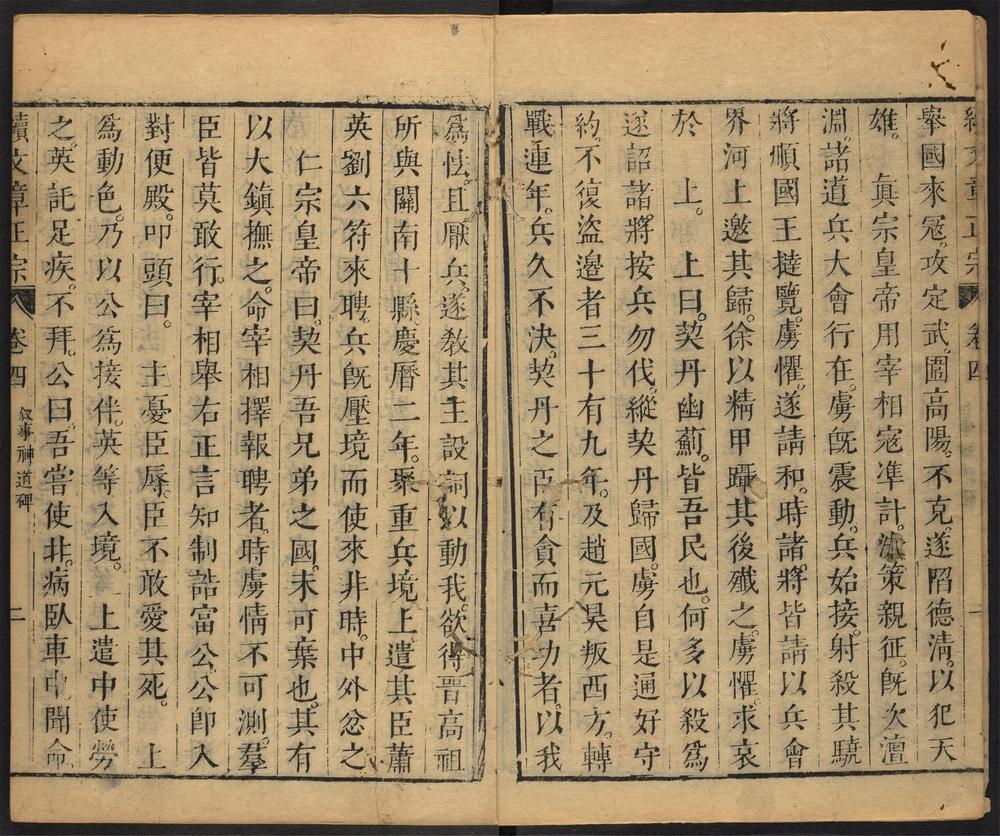 續文章正宗 卷四 一
舉國來寇。攻定武。圍高陽。不克。遂陷德清。以犯天
雄。 真宗皇帝用宰相寇準計。決策親征。旣次澶
淵。諸道兵大會行在。虜旣震動。兵始接。射殺其驍
將順國王撻覽。虜懼。遂請和。時諸將皆請以兵會
界河上。邀其歸。徐以精甲躡其後殲之。虜懼。求哀
於 上。 上曰。契丹幽薊。皆吾民也。何多以殺爲
遂詔諸將按兵勿伐。縱契丹歸國。虜自是通好守
約。不復盜邊者三十有九年。及趙元昊叛西方。轉
戰連年。兵久不決。契丹之臣有貪而喜功者。以我
爲怯。且厭兵。遂敎其主設詞以動我。欲得晋高祖
所與關南十縣。慶曆二年。聚重兵境上。遣其臣蕭
英劉六符來聘。兵旣壓境而使來非時。中外忿之
仁宗皇帝曰。契丹吾兄弟之國。未可棄也。其有
以大鎭撫之。命宰相擇報聘者。時虜情不可測。羣
臣皆莫敢行。宰相舉右正言知制誥富公。公卽入
對便殿。叩頭曰。 主憂臣辱。臣不敢愛其死。 上
爲動色。乃以公爲接伴。英等入境。 上遣中使勞
之。英託足疾。不拜。公曰。吾嘗使北。病臥車中。聞命
續文章正宗 卷四 叙事神道碑 二